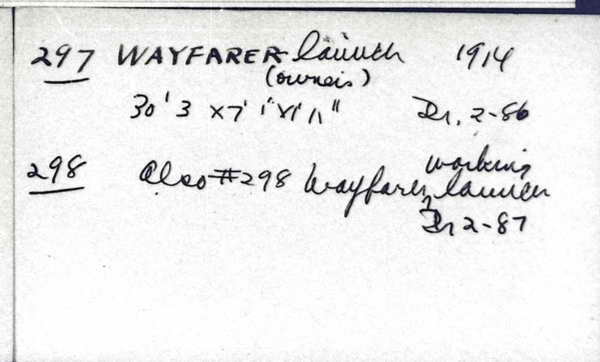 297 WAYFARER launch 1914
(owners)
30' 3 x 7' 1" x 1' 11" Dr. 2-86
298 Also #298 Wayfarer working launch
Dr 2-87